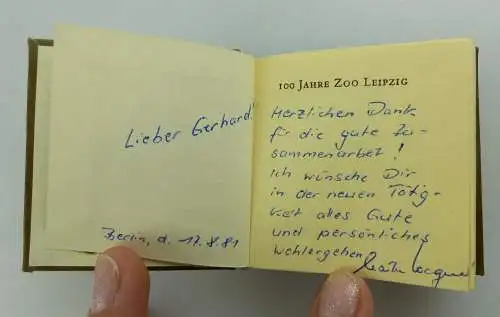 Lieber Gerhard!
Berlin, d. 17.8.81
100 JAHRE ZOO LEIPZIG
Herzlichen Dank
für die gute Zu-
sammenarbeit!
Ich wünsche Dir
in der neuen Tätig-
keit alles Gute
und persönliches
Wohlergehen